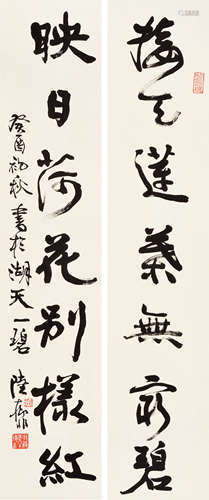 接天蓮葉無窮碧
映日荷花別樣紅
癸酉初秋書於湖天一碧 陸